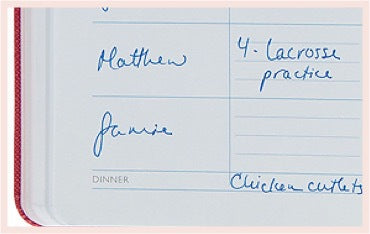 Matthew
4 - Lacrosse
practice
Jamie
DINNER
Chicken cutlets